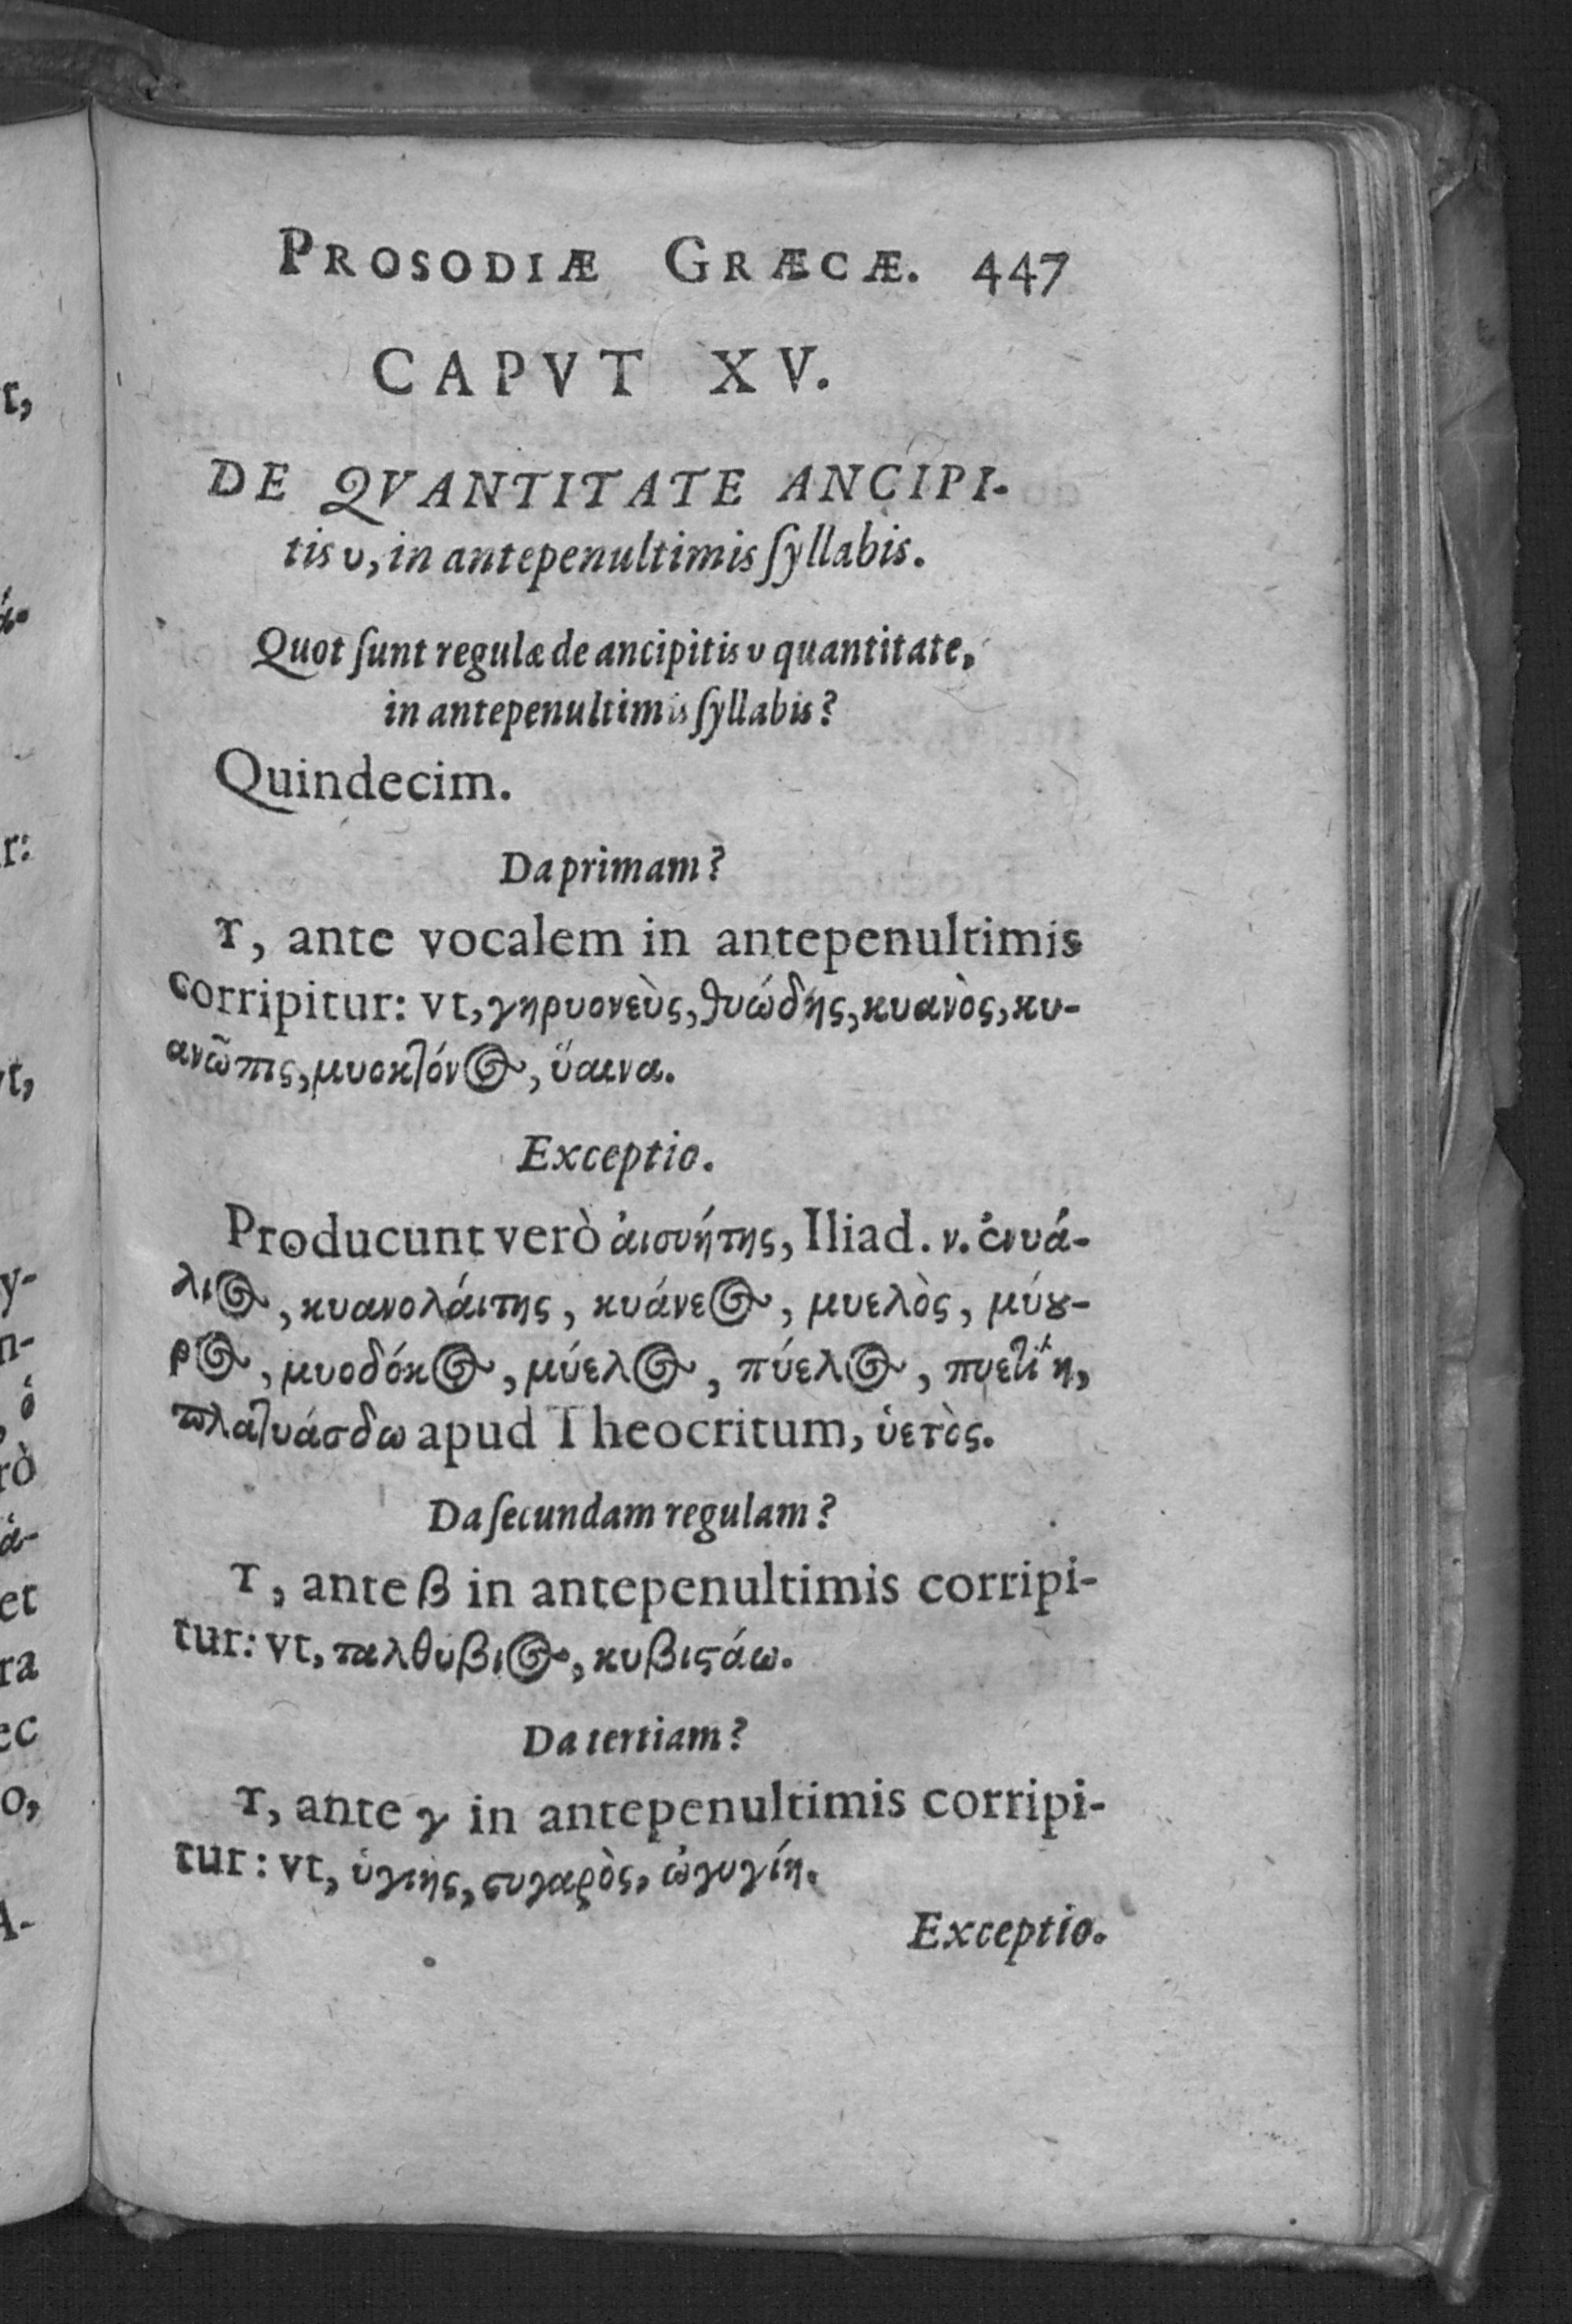 PROSODIÆ GRÆCÆ. 447
CAPVT XV.
DE QVANTITATE ANCIPI-
tis υ, in antepenultimis ſyllabis.
Quot ſunt regulæ de ancipitis υ quantitate,
in antepenultimis ſyllabis?
Quindecim.
Da primam?
Υ, ante vocalem in antepenultimis
corripitur: vt, γηρυονεὺς, θυώδης, κυανὸς, κυ-
ανῶπις, μυοκτόνος, ὕαινα.
Exceptio.
Producunt verò ἀισυήτης, Iliad. ν. ἐνυά-
λιος, κυανολάιτης, κυάνεος, μυελὸς, μύȣ-
ρος, μυοδόκος, μύελος, πύελος, πυετίη,
πλατυάσδω apud Theocritum, ὑετὸς.
Da ſecundam regulam?
Υ, ante β in antepenultimis corripi-
tur: vt, ταλθυβιος, κυβιϛάω.
Da tertiam?
Υ, ante γ in antepenultimis corripi-
tur: vt, ὑγιης, ϛυγαρὸς, ὠγυγίη.
Exceptio.
t,
r:
vt,
y-
n-
ὁ
rò
ά-
et
ra
ec
o,